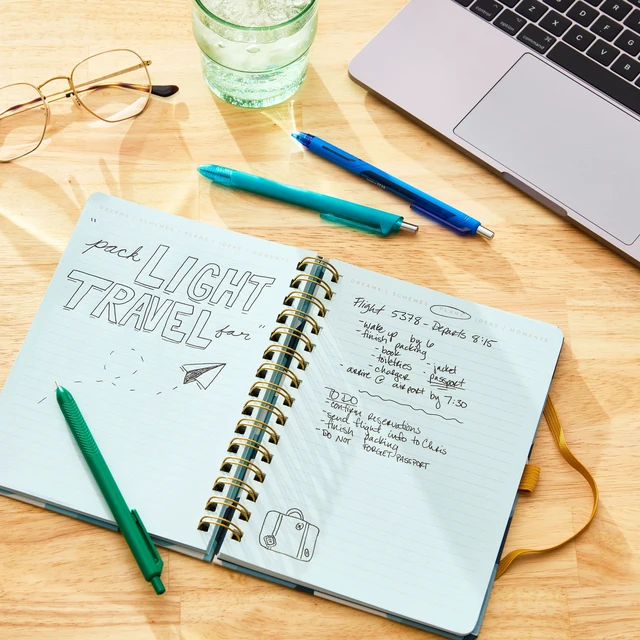 "pack LIGHT
TRAVEL far"
DREAMS | SCHEMES | PLANS | IDEAS | MOMENTS
DREAMS | SCHEMES | PLANS | IDEAS | MOMENTS
Flight 5378 - Departs 8:15
- wake up by 6
- finish packing
- book - jacket
- toiletries - passport
- charger
- arrive @ airport by 7:30
TO DO
- confirm reservations
- send flight info to Chris
- finish packing
- DO NOT FORGET PASSPORT
Z
X
C
V
B
command